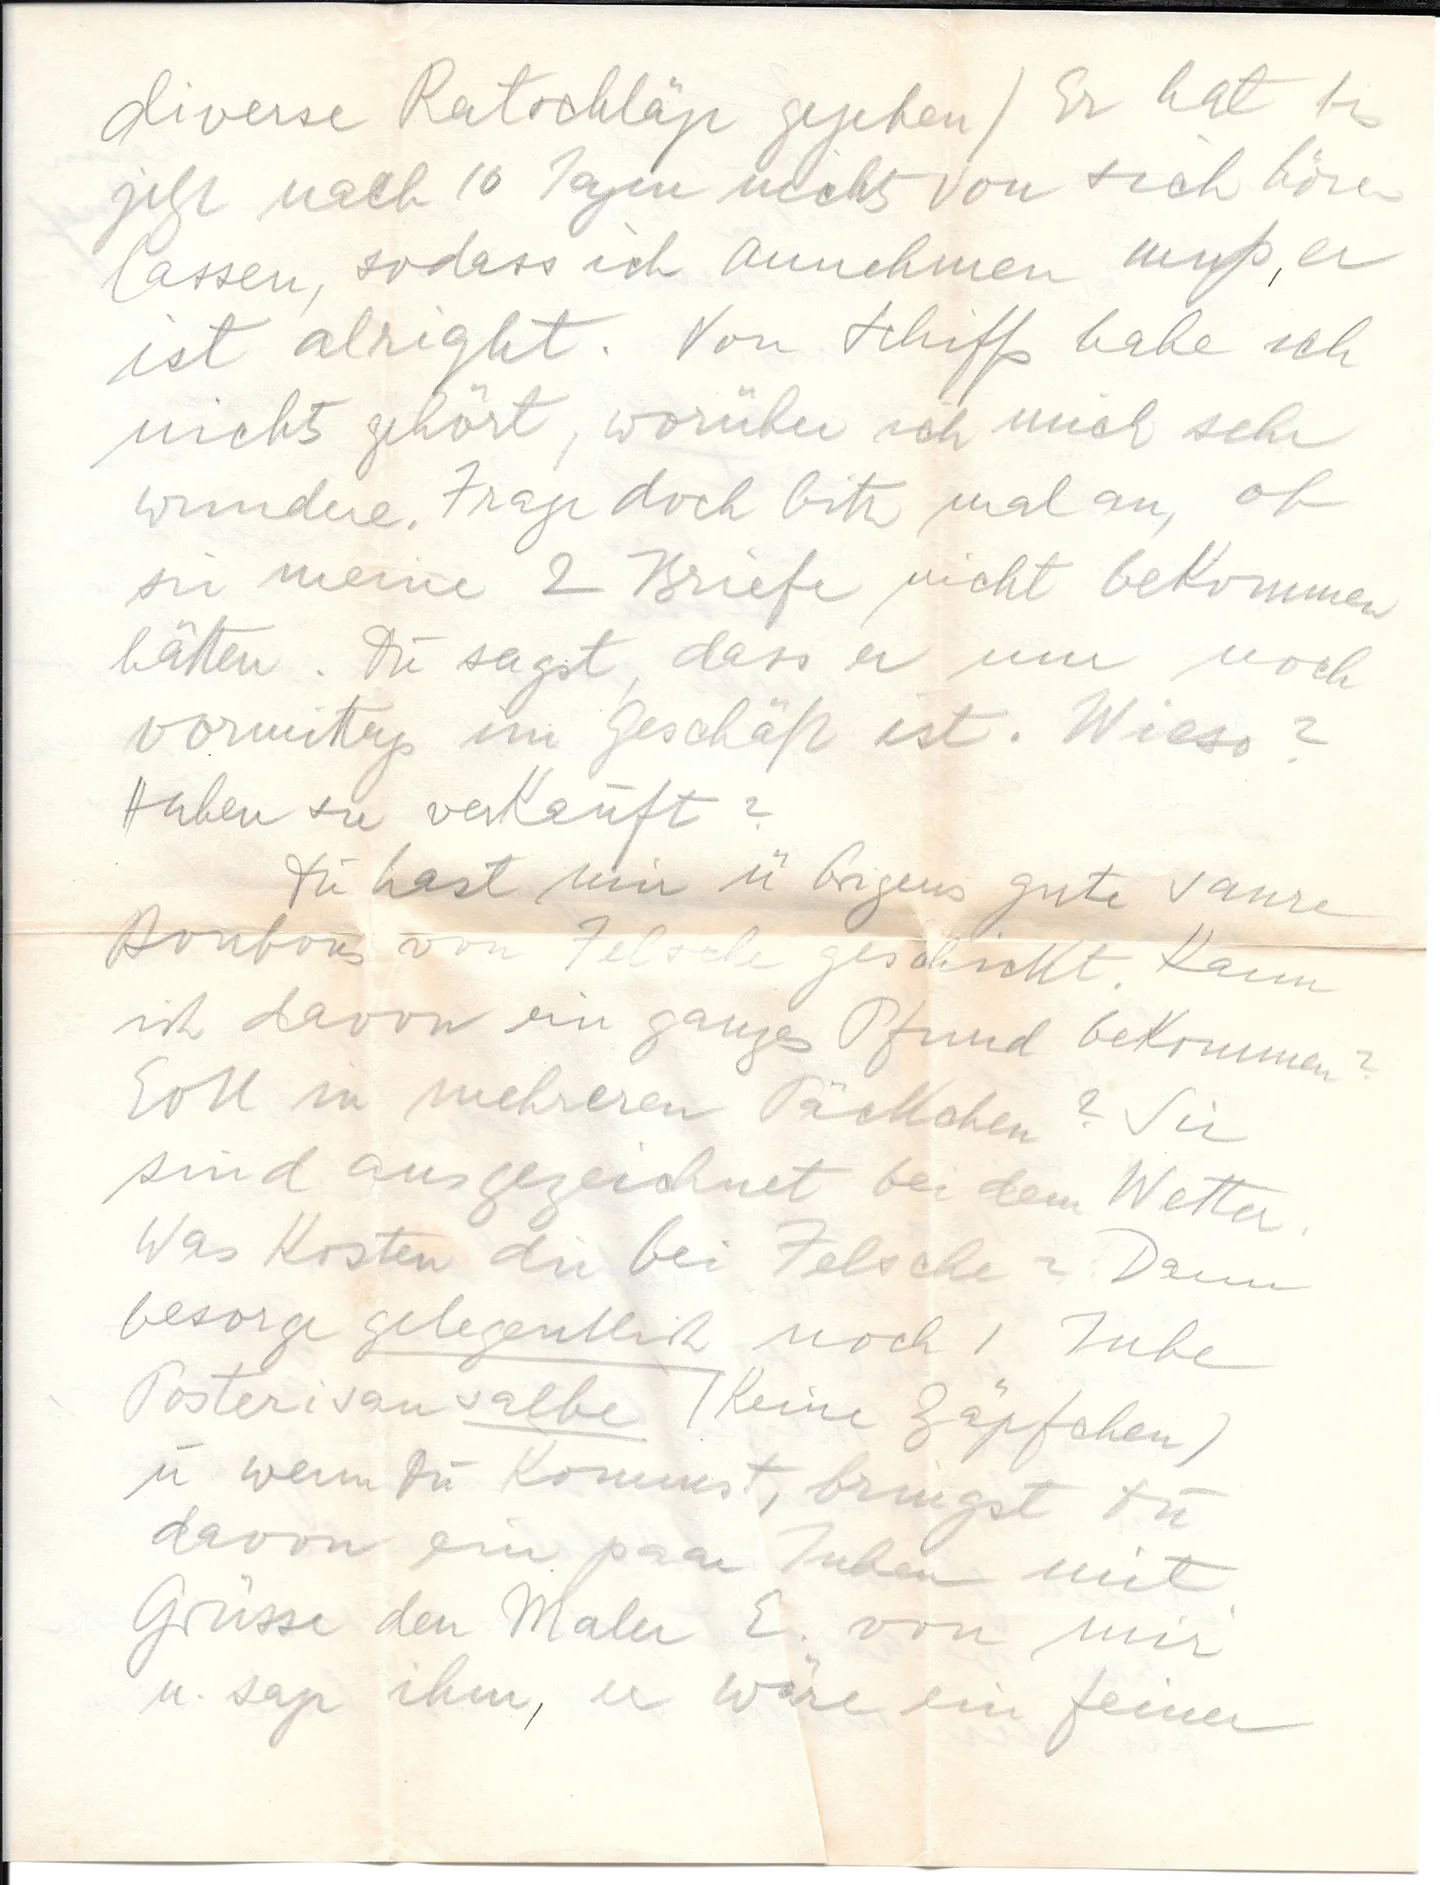 diverse Ratschläge gegeben) Er hat bis
jetzt nach 10 Tagen nichts von sich hören
lassen, sodass ich annehmen muß, er
ist alright. Von Schiffs habe ich
nichts gehört, worüber ich mich sehr
wundere. Frage doch bitte mal an, ob
sie meine 2 Briefe nicht bekommen
hätten. Du sagst, dass er nur noch
vormittags im Geschäft ist. Wieso?
Haben sie verkauft?
Du hast mir übrigens gute saure
Bonbons von Felsche geschickt. Kann
ich davon ein ganzes Pfund bekommen?
Evtl in mehreren Päckchen? Sie
sind ausgezeichnet bei dem Wetter.
Was kosten die bei Felsche? Dann
besorge gelegentlich noch 1 Tube
Posterisansalbe (keine Zäpfchen)
u wenn Du kommst, bringst Du
davon ein paar Tuben mit.
Grüsse den Maler E. von mir
u. sage ihm, er wäre ein feiner